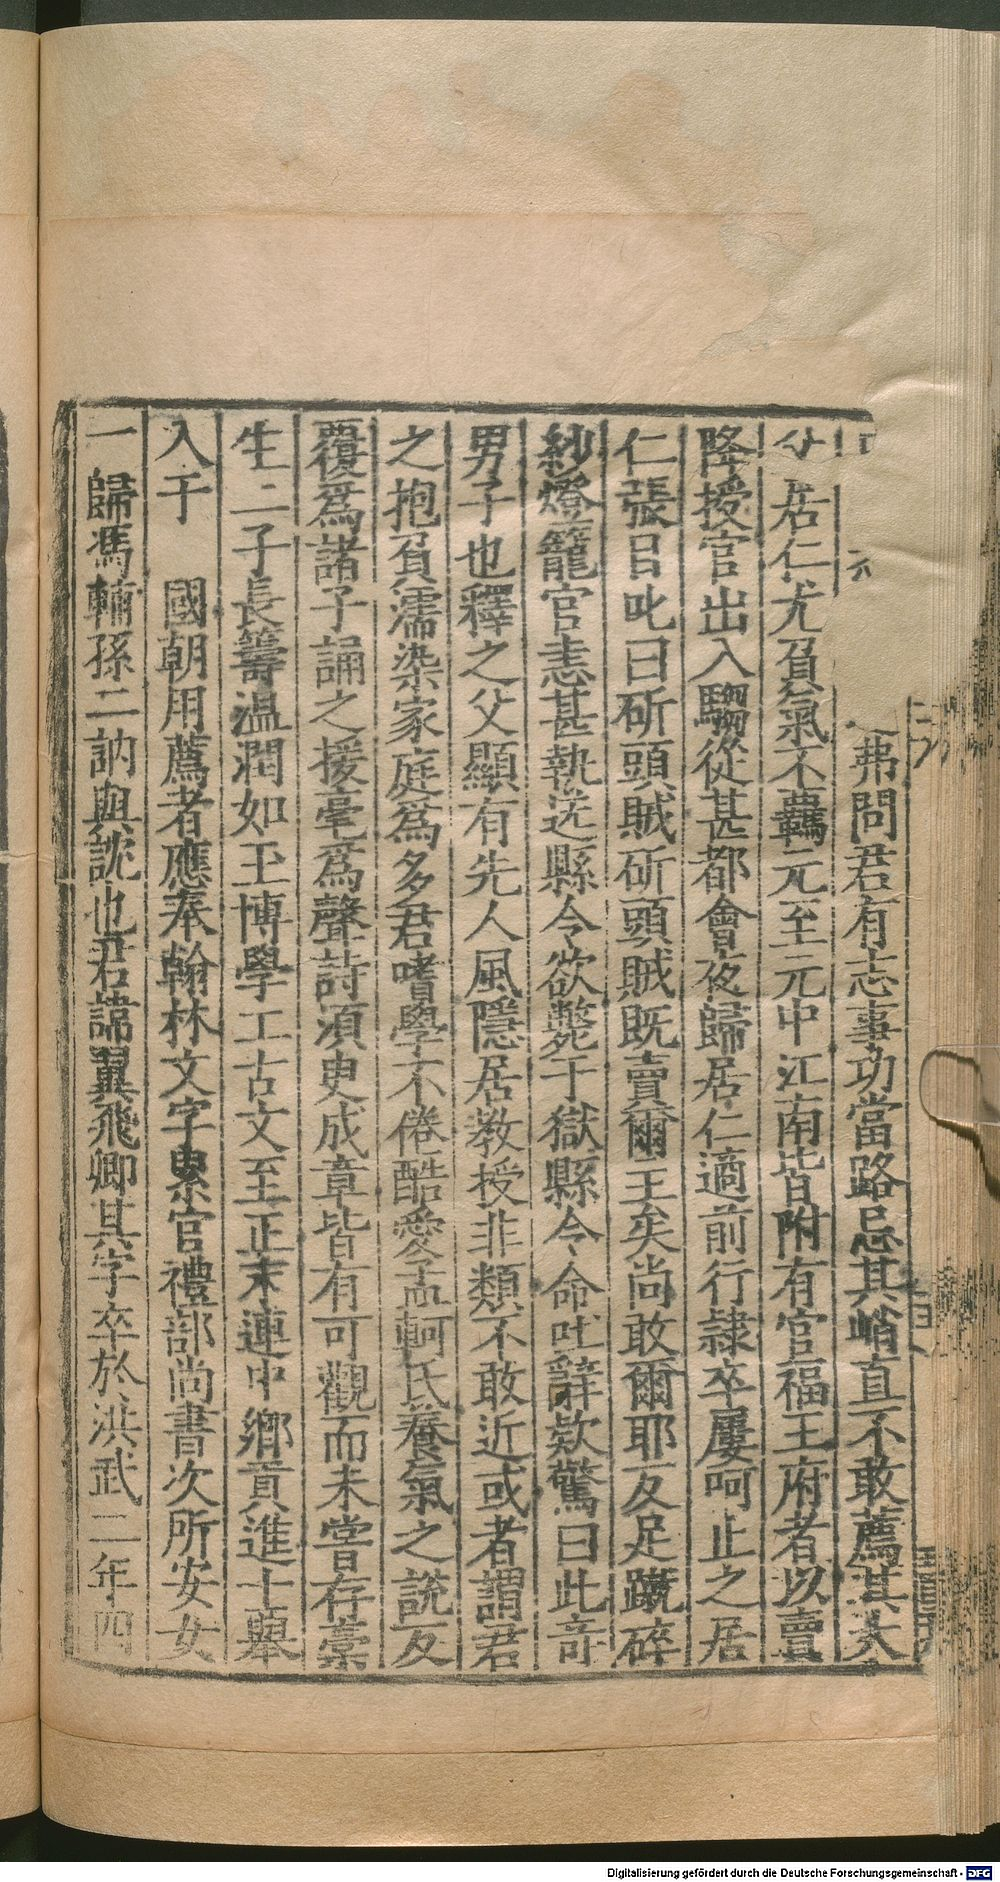 弗問君有志事功當路忌其峭直不敢薦其大
父居仁尤負氣不羈元至元中江南皆附有官福王府者以賣
降授官出入騶從甚都會夜歸居仁適前行隷卒屢呵止之居
仁張目叱曰斫頭賊斫頭賊既賣爾王矣尚敢爾耶反足蹴碎
紗燈籠官恚甚執送縣令欲斃于獄縣令命吐辭欵驚曰此竒
男子也釋之父顯有先人風隱居教授非類不敢近或者謂君
之抱負濡染家庭爲多君嗜學不倦酷愛孟軻氏養氣之說反
覆爲諸子誦之援毫爲聲詩湏臾成章皆有可觀而未甞存藁
生二子長籌溫潤如玉博學工古文至正末連中鄉貢進士舉
入于　國朝用薦者應奉翰林文字累官禮部尚書次所安女
一歸馮輔孫二訥與訦也君諱翼飛卿其字卒於洪武二年四
Digitalisierung gefördert durch die Deutsche Forschungsgemeinschaft - DFG